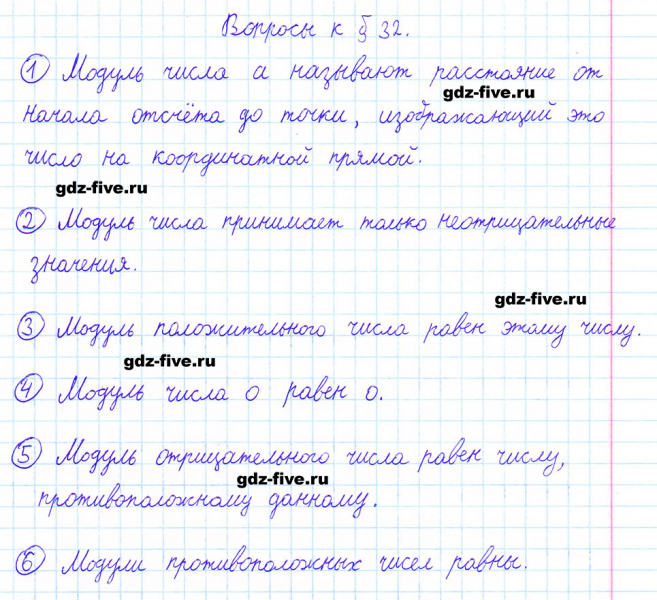 Вопросы к § 32.
1 Модуль числа а называют расстояние от
gdz-five.ru
начала отсчёта до точки, изображающий это
число на координатной прямой.
gdz-five.ru
2 Модуль числа принимает только неотрицательные
значения.
gdz-five.ru
3 Модуль положительного числа равен этому числу.
gdz-five.ru
4 Модуль числа 0 равен 0.
5 Модуль отрицательного числа равен числу,
gdz-five.ru
противоположному данному.
6 Модули противоположных чисел равны.